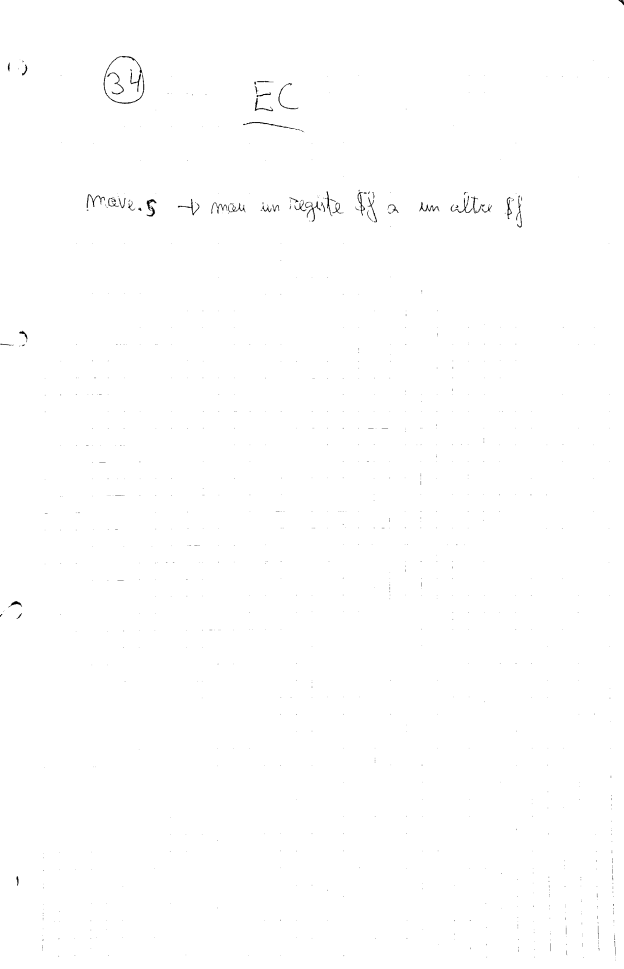 34
EC
move.s → mou un registre $f a un altre $f